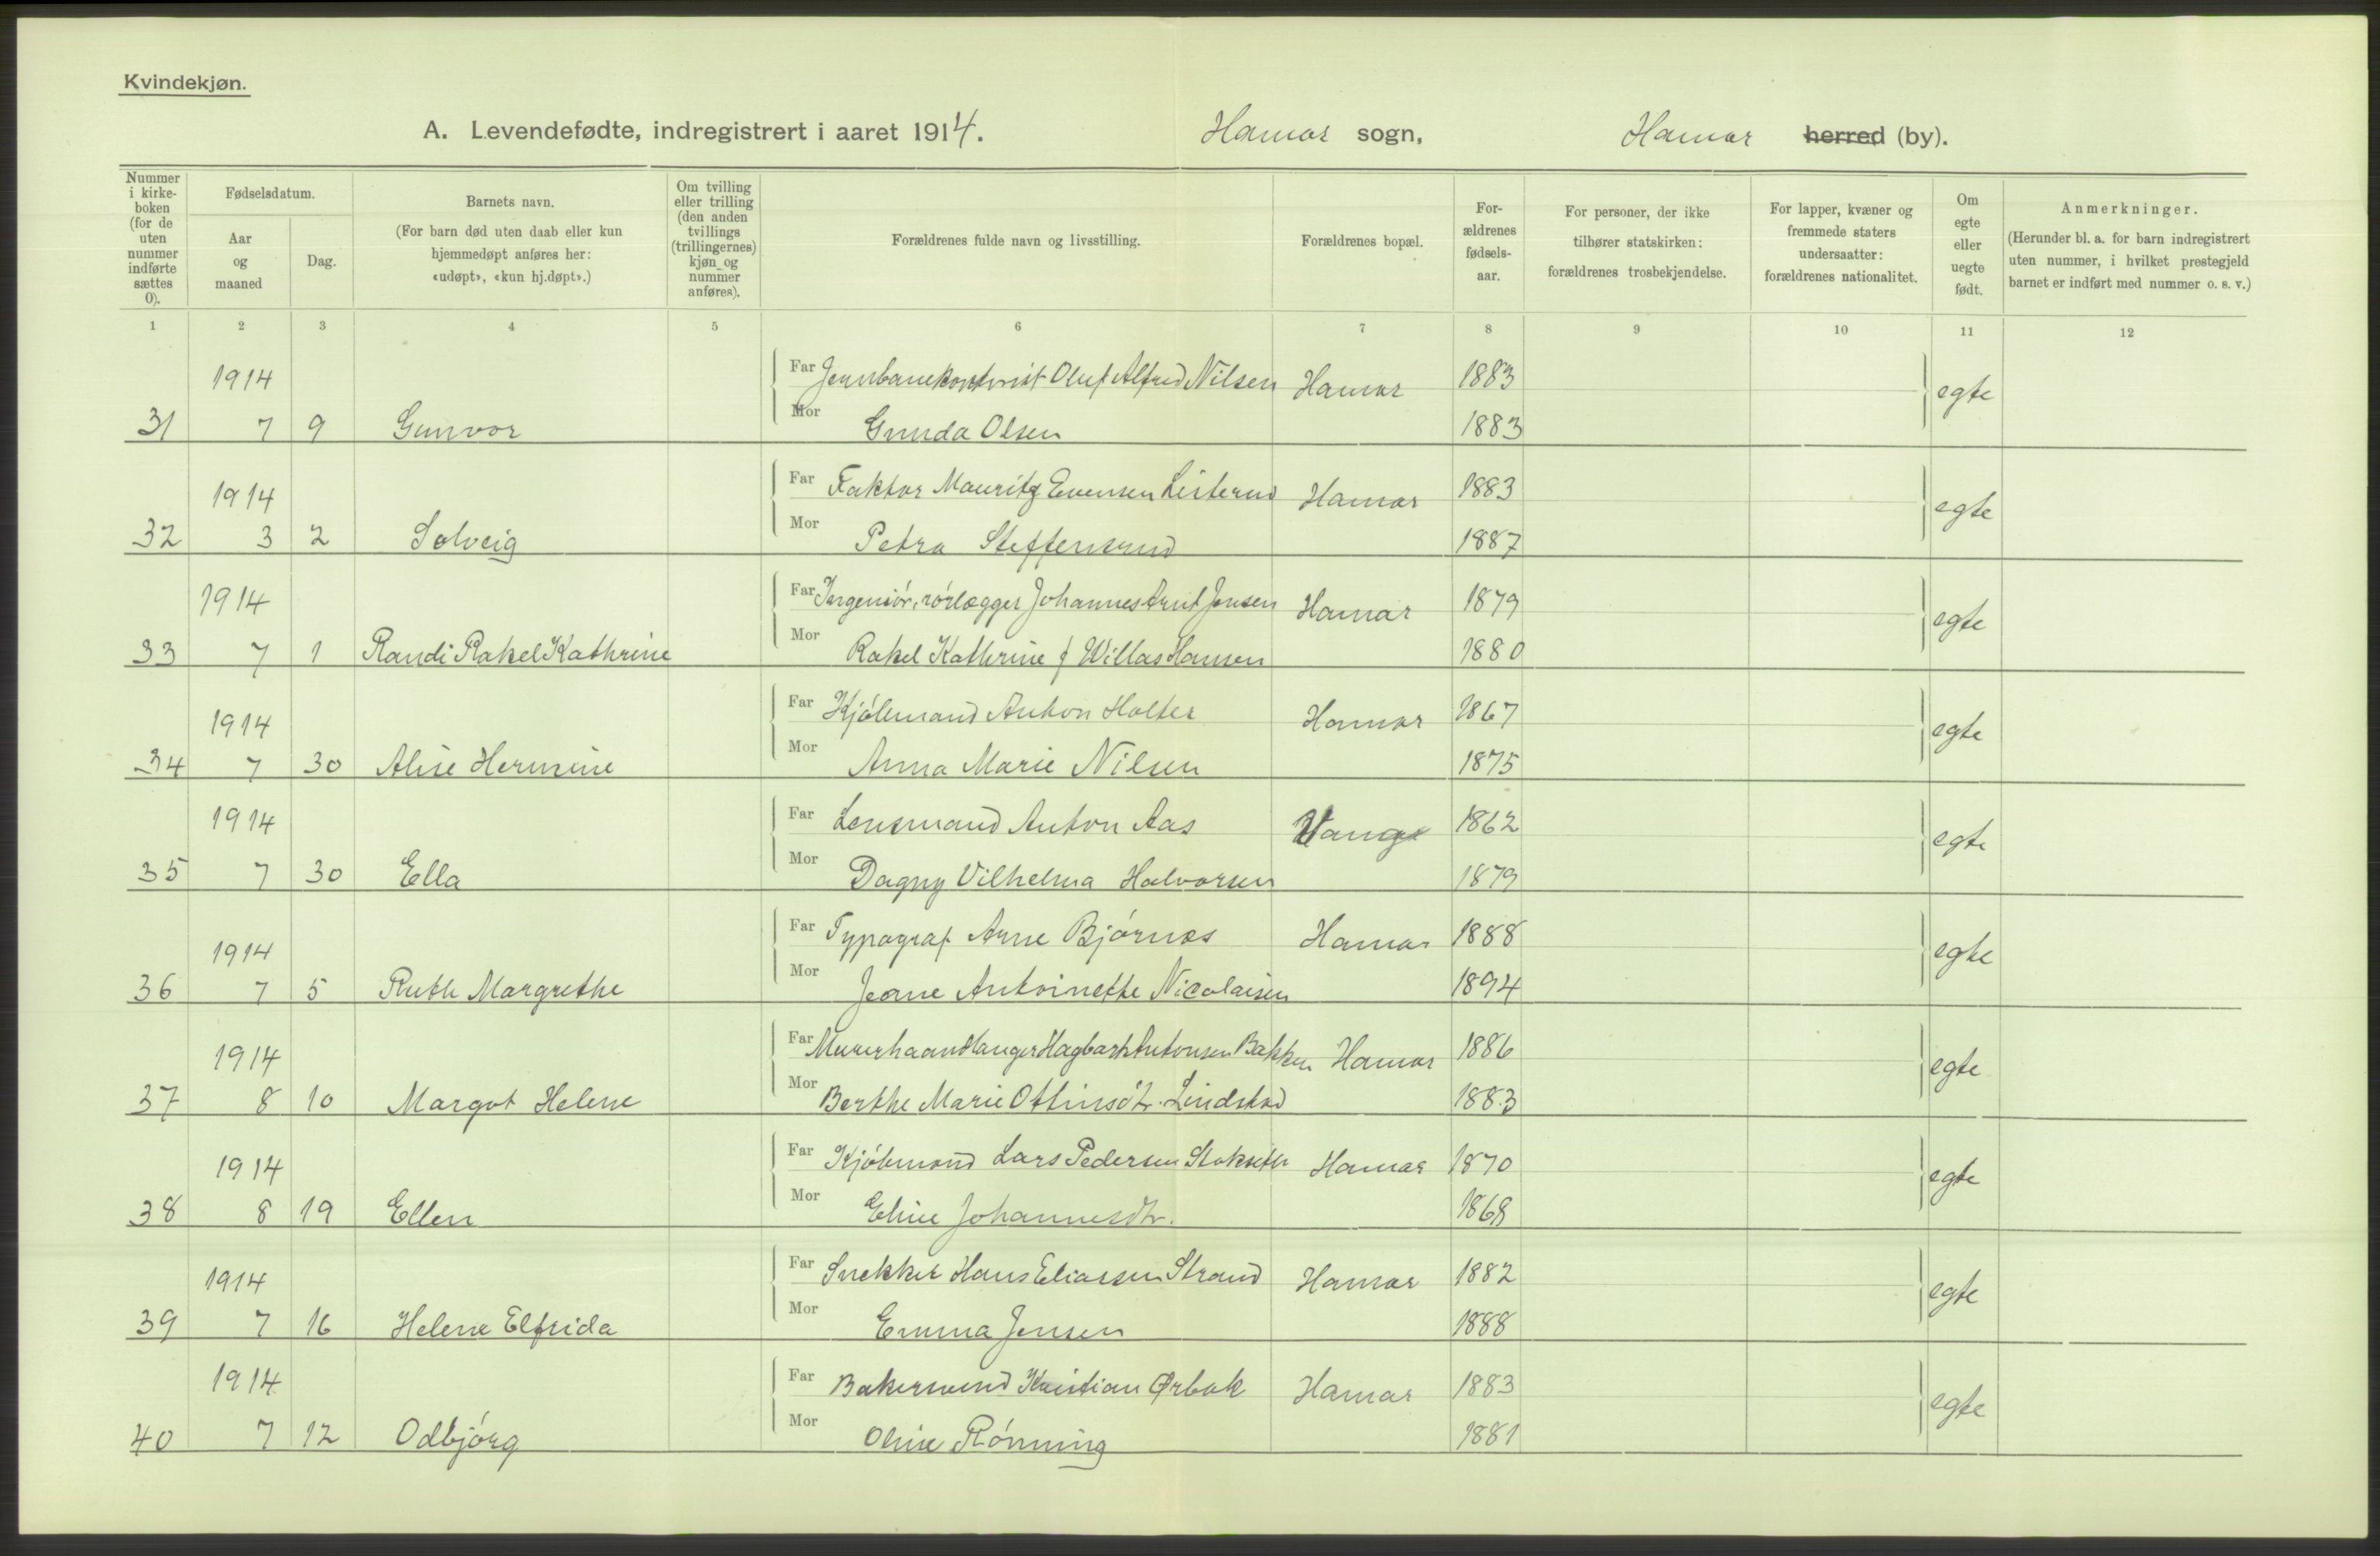 Kvindekjøn.
A. Levendefødte, indregistrert i aaret 1914. Hamar sogn, Hamar herred (by).
Nummer i kirkeboken (for de uten nummer indførte sættes 0).
Fødselsdatum.
Aar og maaned
Dag.
Barnets navn.
(For barn død uten daab eller kun hjemmedøpt anføres her: «udøpt», «kun hj.døpt».)
Om tvilling eller trilling (den anden tvillings (trillingernes) kjøn og nummer anføres).
Forældrenes fulde navn og livsstilling.
Forældrenes bopæl.
For-ældrenes fødsels-aar.
For personer, der ikke tilhører statskirken: forældrenes trosbekjendelse.
For lapper, kvæner og fremmede staters undersaatter: forældrenes nationalitet.
Om egte eller uegte født.
Anmerkninger.
(Herunder bl. a. for barn indregistrert uten nummer, i hvilket prestegjeld barnet er indført med nummer o. s. v.)
1 2 3 4 5 6 7 8 9 10 11 12
1914 Far Jernbanekontorist Oluf Alfred Nilsen Hamar 1883 egte
31 7 9 Gunvor Mor Gunda Olsen 1883
1914 Far Faktor Mauritz Evensen Listerud Hamar 1883 egte
32 3 2 Solveig Mor Petra Steffensrud 1887
1914 Far Ingeniør, rörlægger Johannes Arnt Jensen Hamar 1879 egte
33 7 1 Randi Rakel Kathrine Mor Rakel Kathrine f Willas Hansen 1880
1914 Far Kjólmand Anton Holter Hamar 1867 egte
34 7 30 Alise Hermine Mor Anna Marie Nilsen 1875
1914 Far Lensmand Anton Aas Vang 1862 egte
35 7 30 Ella Mor Dagny Vilhelma Halvorsen 1879
1914 Far Typograf Arne Bjórnæs Hamar 1888 egte
36 7 5 Ruth Margrethe Mor Jeane Antoinette Nicolaisen 1894
1914 Far Murerhaandlanger Hagbarth Antonsen Bakken Hamar 1886 egte
37 8 10 Margot Helene Mor Berthe Marie Ottinsdtr. Lindstad 1883
1914 Far Kjóbmand Lars Pedersen Stokseth Hamar 1870 egte
38 8 19 Ellen Mor Eline Johannesdtr. 1868
1914 Far Snekker Hans Eliassen Strand Hamar 1882 egte
39 7 16 Helene Elfrida Mor Emma Jensen 1888
1914 Far Bakersvend Kristian Ørbak Hamar 1883 egte
40 7 12 Odbjórg Mor Oline Rónning 1881